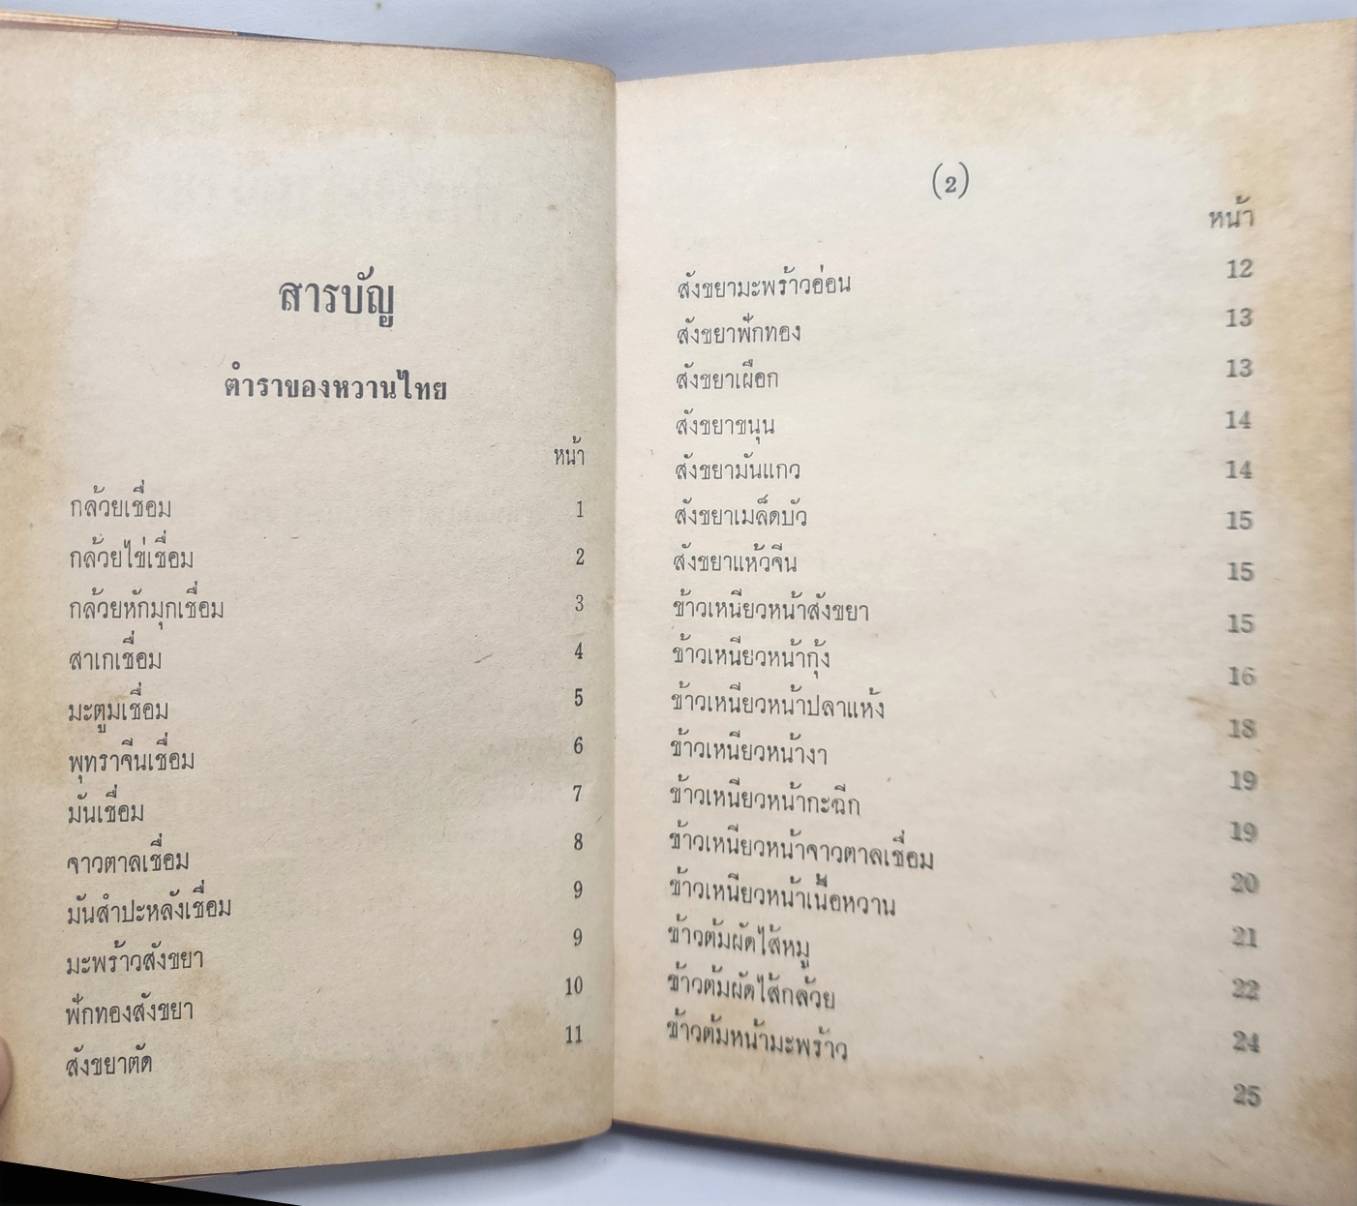 สารบัญ
ตำราของหวานไทย
หน้า
กล้วยเชื่อม 1
กล้วยไข่เชื่อม 2
กล้วยหักมุกเชื่อม 3
สาเกเชื่อม 4
มะตูมเชื่อม 5
พุทราจีนเชื่อม 6
มันเชื่อม 7
จาวตาลเชื่อม 8
มันสำปะหลังเชื่อม 9
มะพร้าวสังขยา 9
ฟักทองสังขยา 10
สังขยาตัด 11
(2)
หน้า
สังขยามะพร้าวอ่อน 12
สังขยาฟักทอง 13
สังขยาเผือก 13
สังขยาขนุน 14
สังขยามันแกว 14
สังขยาเมล็ดบัว 15
สังขยาแห้วจีน 15
ข้าวเหนียวหน้าสังขยา 15
ข้าวเหนียวหน้ากุ้ง 16
ข้าวเหนียวหน้าปลาแห้ง 18
ข้าวเหนียวหน้างา 19
ข้าวเหนียวหน้ากะฉีก 19
ข้าวเหนียวหน้าจาวตาลเชื่อม 20
ข้าวเหนียวหน้าเนื้อหวาน 21
ข้าวต้มผัดไส้หมู 22
ข้าวต้มผัดไส้กล้วย 24
ข้าวต้มหน้ามะพร้าว 25